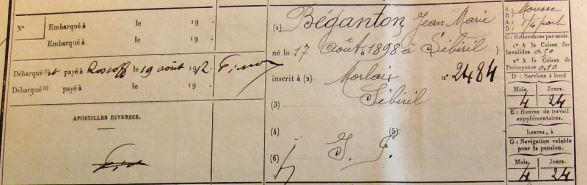 N° Embarqué à le 19
Embarqué à le 19 .
Débarqué et payé à Roscoff le 19 août 1912.
Débarqué (1) payé à le 19 .
APOSTILLES DIVERSES.
(1) Béganton, Jean Marie
né le 17 Août 1898 à Sibiril
inscrit à (2) Morlaix n° 2484
(3) Sibiril
(4) (5)
(6)
A: Mousse
B:
C: Redevances par mois.
1° A la Caisse des Invalides 0,50
2° A la Caisse de Prévoyance 0,10
D: Services à bord
Mois. Jours.
4 24
E: Heures de travail supplémentaires.
heures, à
G: Navigation valable pour la pension.
Mois. Jours.
4 24